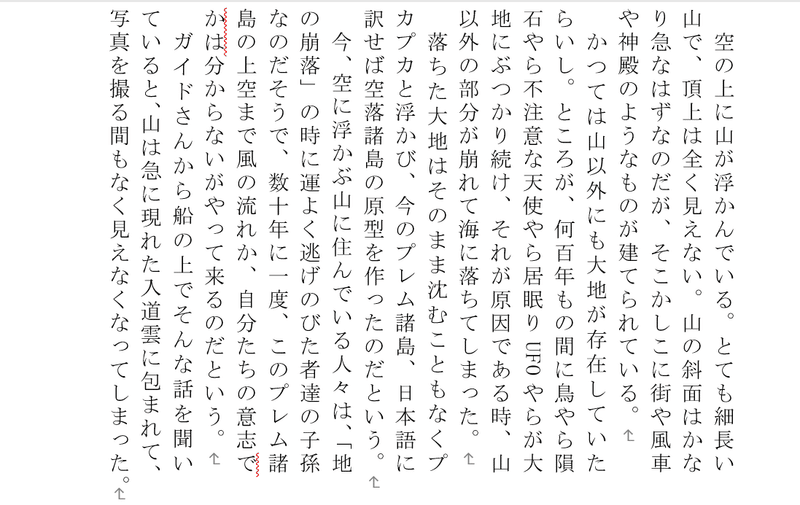 空の上に山が浮かんでいる。とても細長い
山で、頂上は全く見えない。山の斜面はかな
り急なはずなのだが、そこかしこに街や風車
や神殿のようなものが建てられている。
かつては山以外にも大地が存在していた
らいし。ところが、何百年もの間に鳥やら隕
石やら不注意な天使やら居眠りUFOやらが大
地にぶつかり続け、それが原因である時、山
以外の部分が崩れて海に落ちてしまった。
落ちた大地はそのまま沈むこともなくプ
カプカと浮かび、今のプレム諸島、日本語に
訳せば空落諸島の原型を作ったのだという。
今、空に浮かぶ山に住んでいる人々は、「地
の崩落」の時に運よく逃げのびた者達の子孫
なのだそうで、数十年に一度、このプレム諸
島の上空まで風の流れか、自分たちの意志で
かは分からないがやって来るのだという。
ガイドさんから船の上でそんな話を聞い
ていると、山は急に現れた入道雲に包まれて、
写真を撮る間もなく見えなくなってしまった。